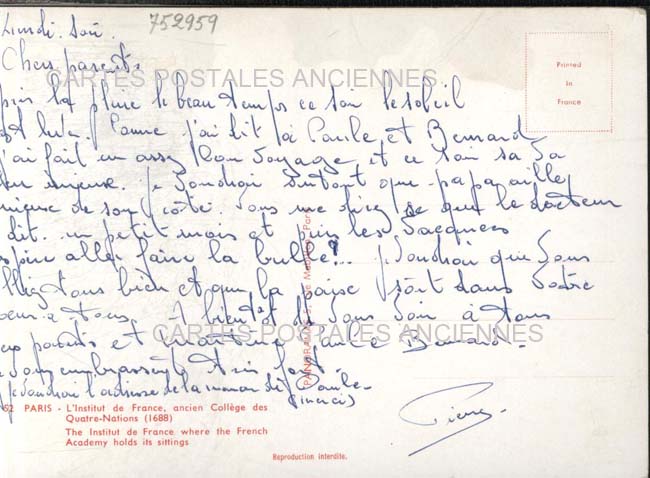 752959
Lundi. soir.
Chers parents
CARTES POSTALES ANCIENNES
Printed
in
France
la pluie le beau temps ce soir le soleil
j'ai dit à Paule et Bernard
j'ai fait un assez bon voyage et ce soir sa va
mieux. je voudrai surtout que papa aille
mieux de son côté. vous me direz se que le docteur
dit. un petit mois et puis les vacances
aller faire la bulle!... je voudrai que vous
alliez tous bien et que la paise soit dans votre
coeur a tous. A bientôt de vous voir à tous
CARTES POSTALES ANCIENNES
et Paule Bernard.
vous embrassent très fort.
je voudrai l'adresse de la maman de Paule.
(merci)
Pierre.
52 PARIS - L'Institut de France, ancien Collège des
Quatre-Nations (1688)
The Institut de France where the French
Academy holds its sittings
Reproduction interdite.